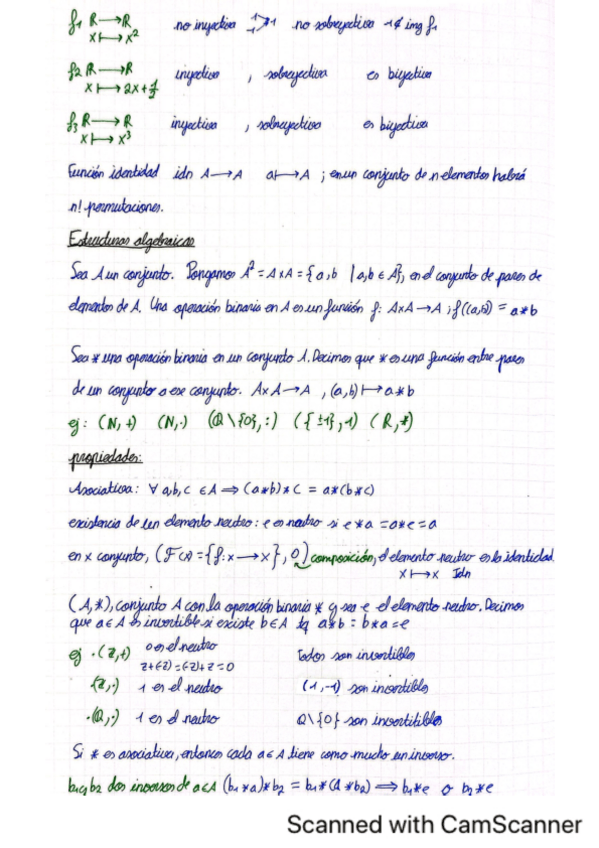 f₁ R⟶R no inyectiva ¹₋₁>1 no sobreyectiva -1∉ img f₁
x⟼x²
f₂ R⟶R inyectiva , sobreyectiva es biyectiva
x⟼2x+½
f₃ R⟶R inyectiva , sobreyectiva es biyectiva
x⟼x³
Función identidad idn A⟶A a⟼A ; en un conjunto de n elementos habrá
n! permutaciones.
Estructuras algebraicas
Sea A un conjunto. Pongamos A² = A×A = {a,b | a,b ∈ A}, en el conjunto de pares de
elementos de A. Una operación binaria en A es un función f: A×A→A ; f((a,b)) = a*b
Sea * una operación binaria en un conjunto A. Decimos que * es una función entre pares
de un conjunto a ese conjunto. A×A→A , (a,b)⟼a*b
ej: (N,+) (N,·) (Q\{0},:) ({±1},·) (R,*)
propiedades:
Asociativa: ∀ a,b,c ∈A ⟹ (a*b)*c = a*(b*c)
existencia de un elemento neutro: e es neutro si e*a = a*e = a
en x conjunto, (F(x) = {f: x→x}, O) composición, el elemento neutro es la identidad.
x⟼x Idn
(A,*), conjunto A con la operación binaria * y sea e el elemento neutro. Decimos
que a∈A es invertible si existe b∈A tq a*b = b*a = e
ej ·(Z,+) 0 es el neutro Todos son invertibles
z+(-z) = (-z)+z = 0
·(Z,·) 1 es el neutro (1,-1) son invertibles
·(Q,·) 1 es el neutro Q\{0} son invertibles
Si * es asociativa, entonces cada a∈A tiene como mucho un inverso.
b₁ y b₂ dos inversos de a∈A (b₁*a)*b₂ = b₁*(a*b₂) ⟹ b₁*e o b₂*e
Scanned with CamScanner